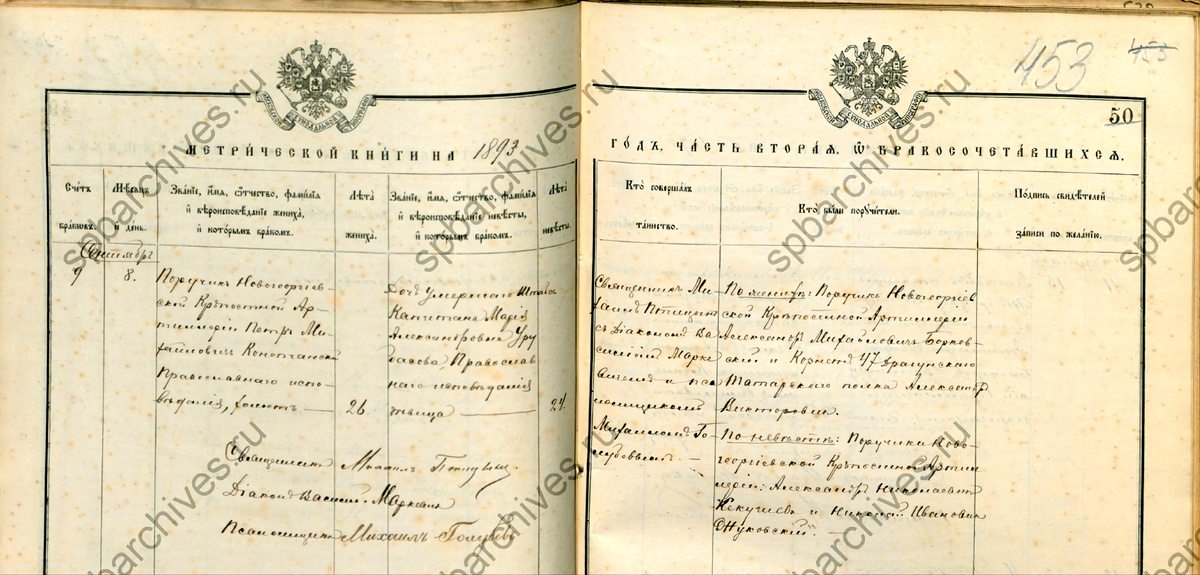 453
453
50
МЕТРИЧЕСКОЙ КНИГИ НА 1893
ГОДЪ, ЧАСТЬ ВТОРАЯ, Ѡ БРАКОСОЧЕТАВШИХСЯ.
Счетъ браковъ.
Мѣсяцъ и день.
Званіе, имя, отчество, фамилія
и вѣроисповѣданіе жениха,
и которымъ бракомъ.
Лѣта
жениха.
Званіе, имя, отчество, фамилія
и вѣроисповѣданіе невѣсты,
и которымъ бракомъ.
Лѣта
невѣсты.
Кто совершалъ
таинство.
Кто были поручители.
Подпись свидѣтелей
записи по желанію.
Сентябрь
9
8.
Поручикъ Новогеоргіев-
ской Крѣпостной Ар-
тиллеріи Петръ Ми-
хайловичъ
Православнаго испо-
вѣданія, холостъ —
26.
Дочь умершаго Штабсъ
Капитана Марія
Александровна Уру
сова, Православ
наго исповѣданія
дѣвица —
24.
Священникъ Ми-
хаилъ Птицынъ
съ Діакономъ Ва
силіемъ Марке
вичемъ и пса
ломщикомъ
Михаиломъ Го-
лубовымъ. —
По женихѣ: Поручикъ Новогеоргіев
ской Крѣпостной Артиллеріи
Александръ Михайловичъ Борков-
скій и Корнетъ 47 Драгунскаго
Татарскаго полка Александръ
Викторовичъ.
По невѣстѣ: Поручики Ново-
георгіевской Крѣпостной Артил
леріи: Александръ Николаевичъ
и Николай Ивановичъ
Жуковскій. —
Священникъ Михаилъ Птицынъ.
Діаконъ Василій Маркевичъ
Псаломщикъ Михаилъ Голубовъ
spbarchives.ru
spbarchives.ru
spbarchives.ru
spbarchives.ru
spbarchives.ru
spbarchives.ru